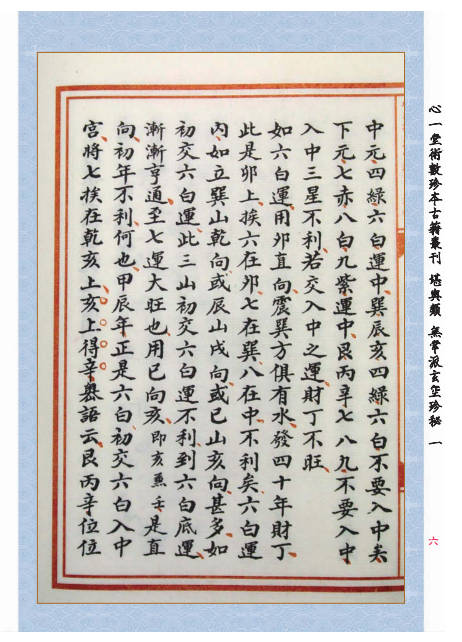 心一堂術數珍本古籍叢刊 堪輿類 無常派玄空珍秘 一
六
中元四綠六白運中巽辰亥四綠六白不要入中矣
下元七赤八白九紫運中艮丙辛七八九不要入中
入中三星不利若交入中之運財丁不旺
如六白運用卯直向震巽方俱有水發四十年財丁
此是卯上挨六在卯七在巽八在中不利矣六白運
內如立巽山乾向或辰山戌向或巳山亥向甚多如
初交六白運此三山初交六白運不利到六白底運
漸漸亨通至七運大旺也用巳向亥即亥兼壬是直
向初年不利何也甲辰年正是六白初交六白入中
宮將七挨在乾亥上亥上得辛奧語云艮丙辛位位